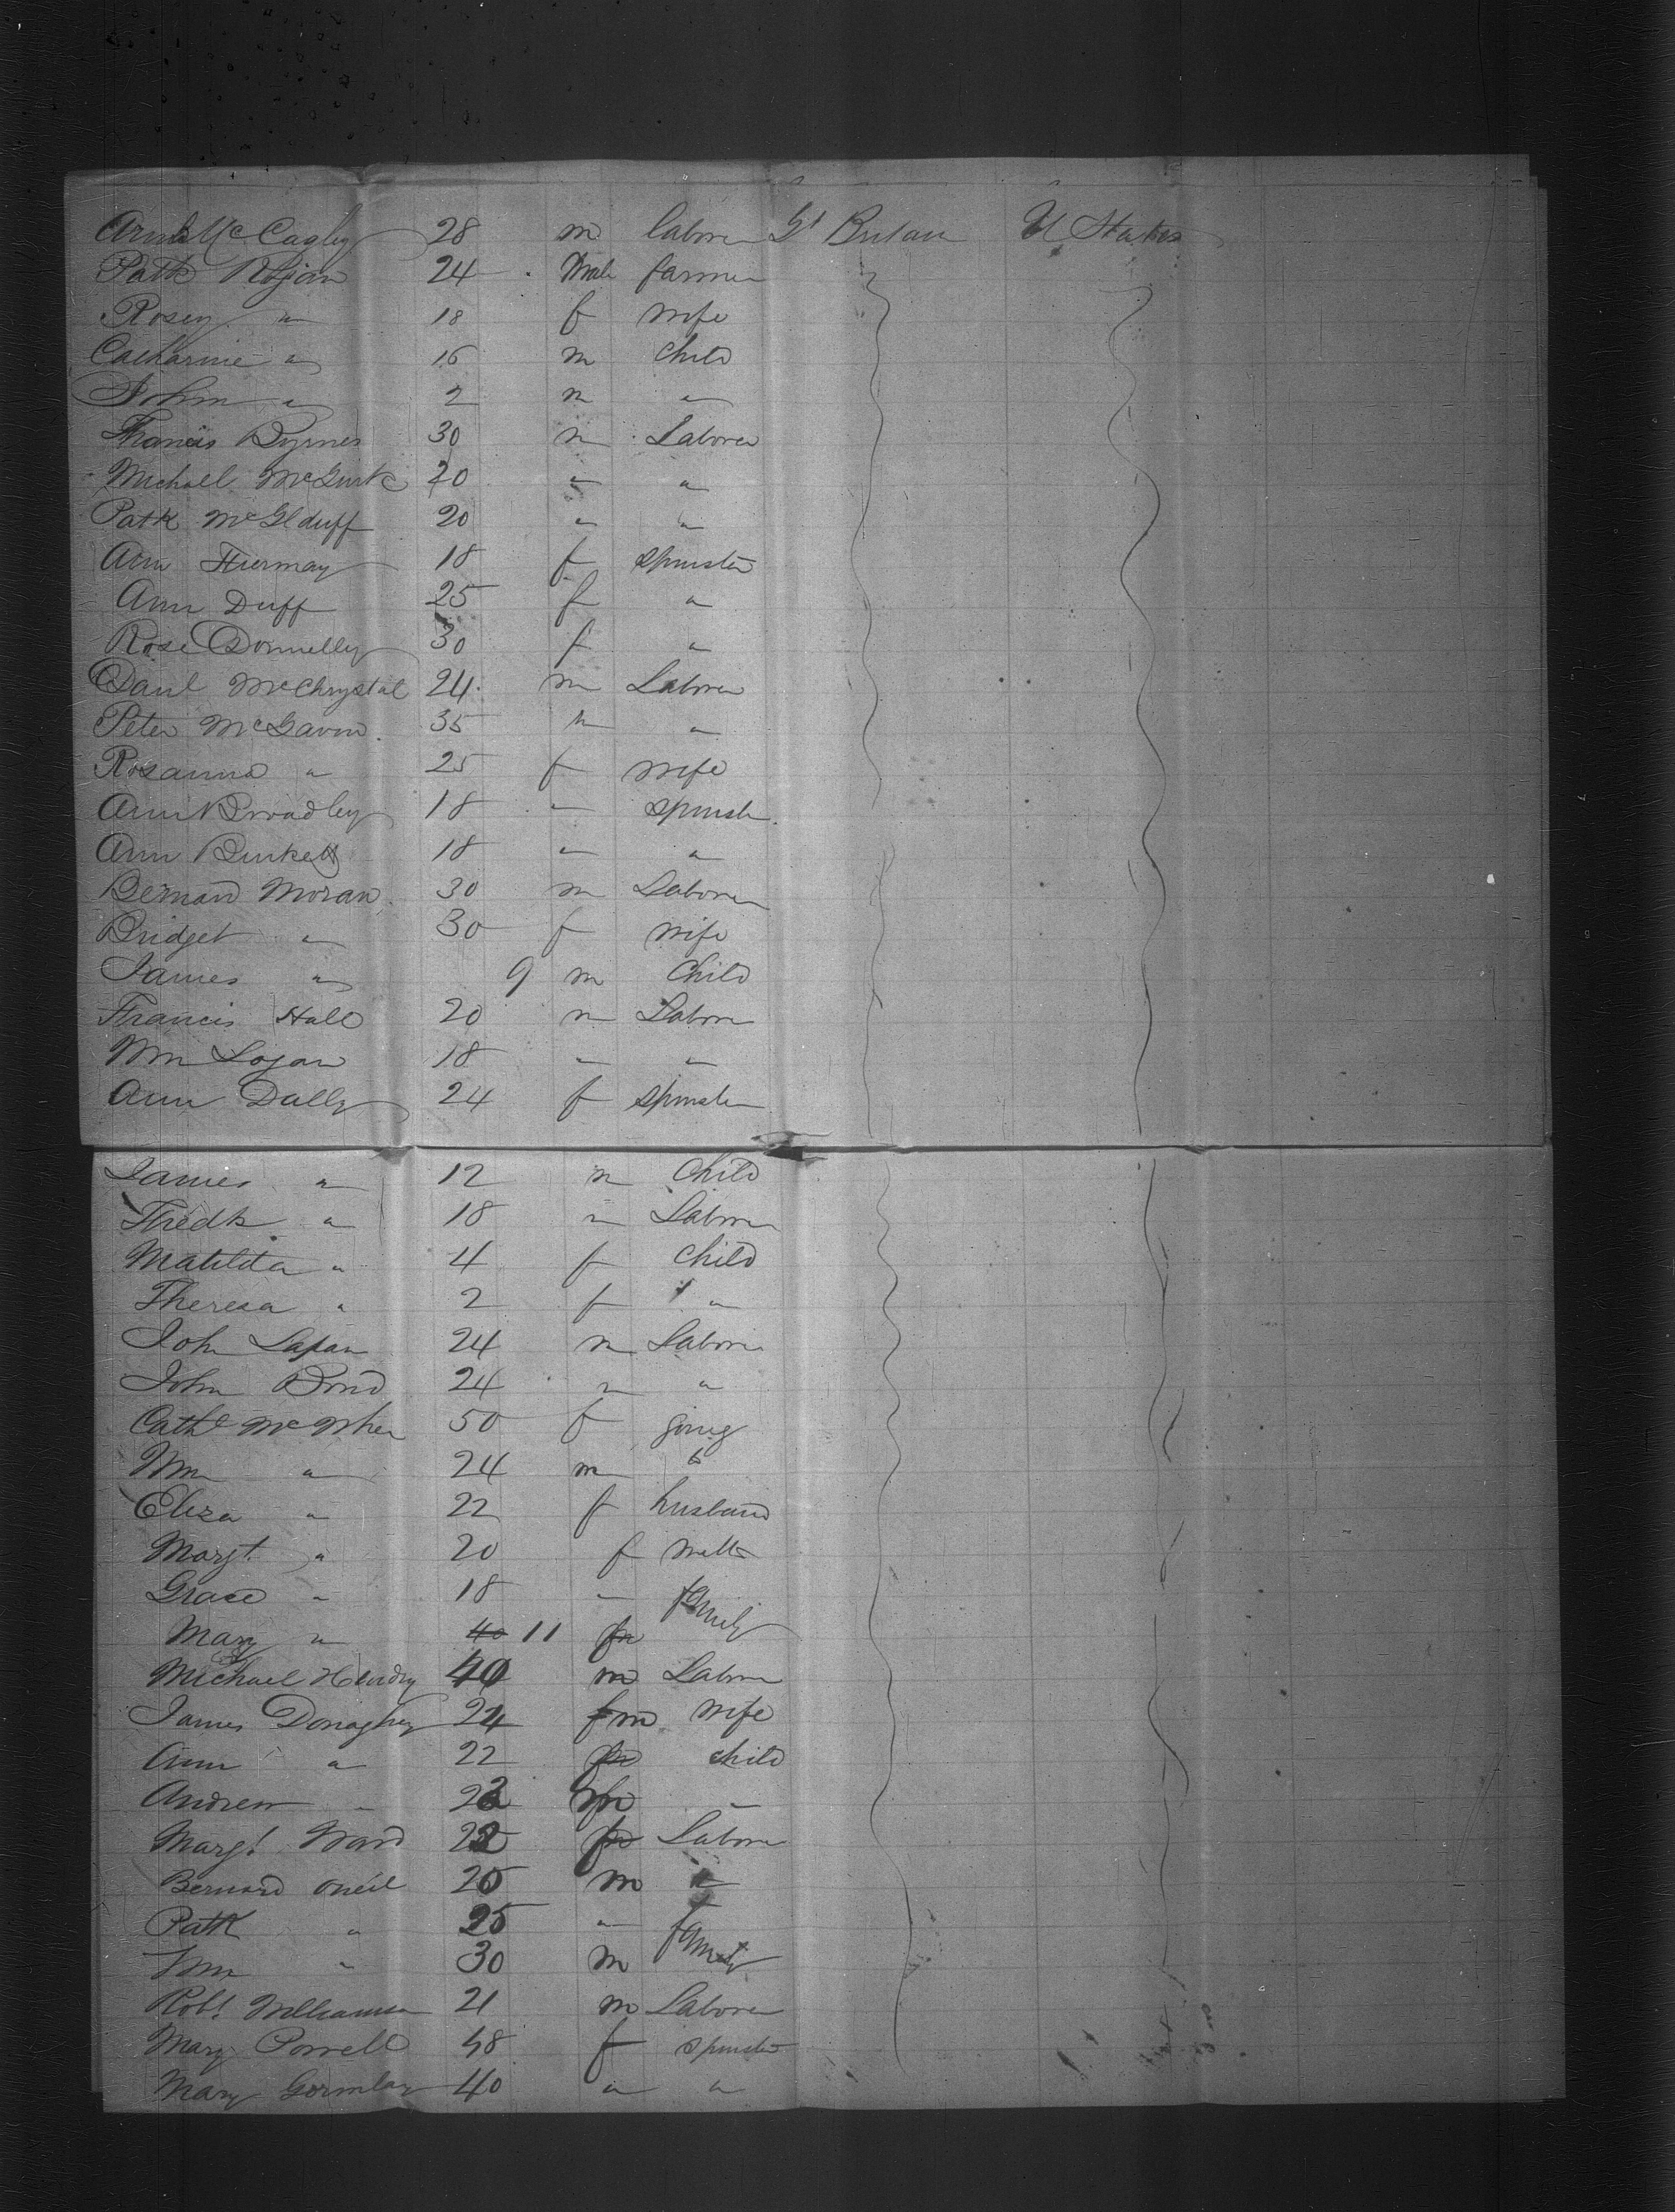 McCagley 28 m labore Gt Britain U States
Patk 24 Male farmer
Rosey " 18 f wife
Catharine " 16 m child
John " 2 m "
Francis Byrnes 30 m Laborer
Michael McGurk 20 " "
Patk McGlduff 20 " "
Ann 18 f spinster
Ann Duff 25 f "
Rose Donnelly 30 f "
Danl McChrystal 24 m Laborer
Peter McGavin 35 m "
Rosanna " 25 f wife
Ann Broadley 18 " spinster
Ann 18 " "
Bernard Moran 30 m Laborer
Bridget " 30 f wife
James " 9 m Child
Francis Hall 20 m Labore
Wm Logan 18 " "
Ann Dally 24 f spinster
James " 12 m child
Fredk " 18 " Labore
Matilda " 4 f child
Theresa " 2 f "
John 24 m Labore
John 24 " "
Cathe 50 f going
Wm " 24 m to
Eliza " 22 f husband
Margt " 20 f with
Grace " 18 " family
Mary " 40 11
Michael 40 m Labore
James Donaghey 24 f m wife
Ann " 22 child
Andrew " "
Margt Ward Labore
Bernard Oneil m "
Patk " 25 " family
Wm " 30 m
Robt Williamson 21 m Laborer
Mary Powell 48 f spinster
Mary Gormlay 40 " "